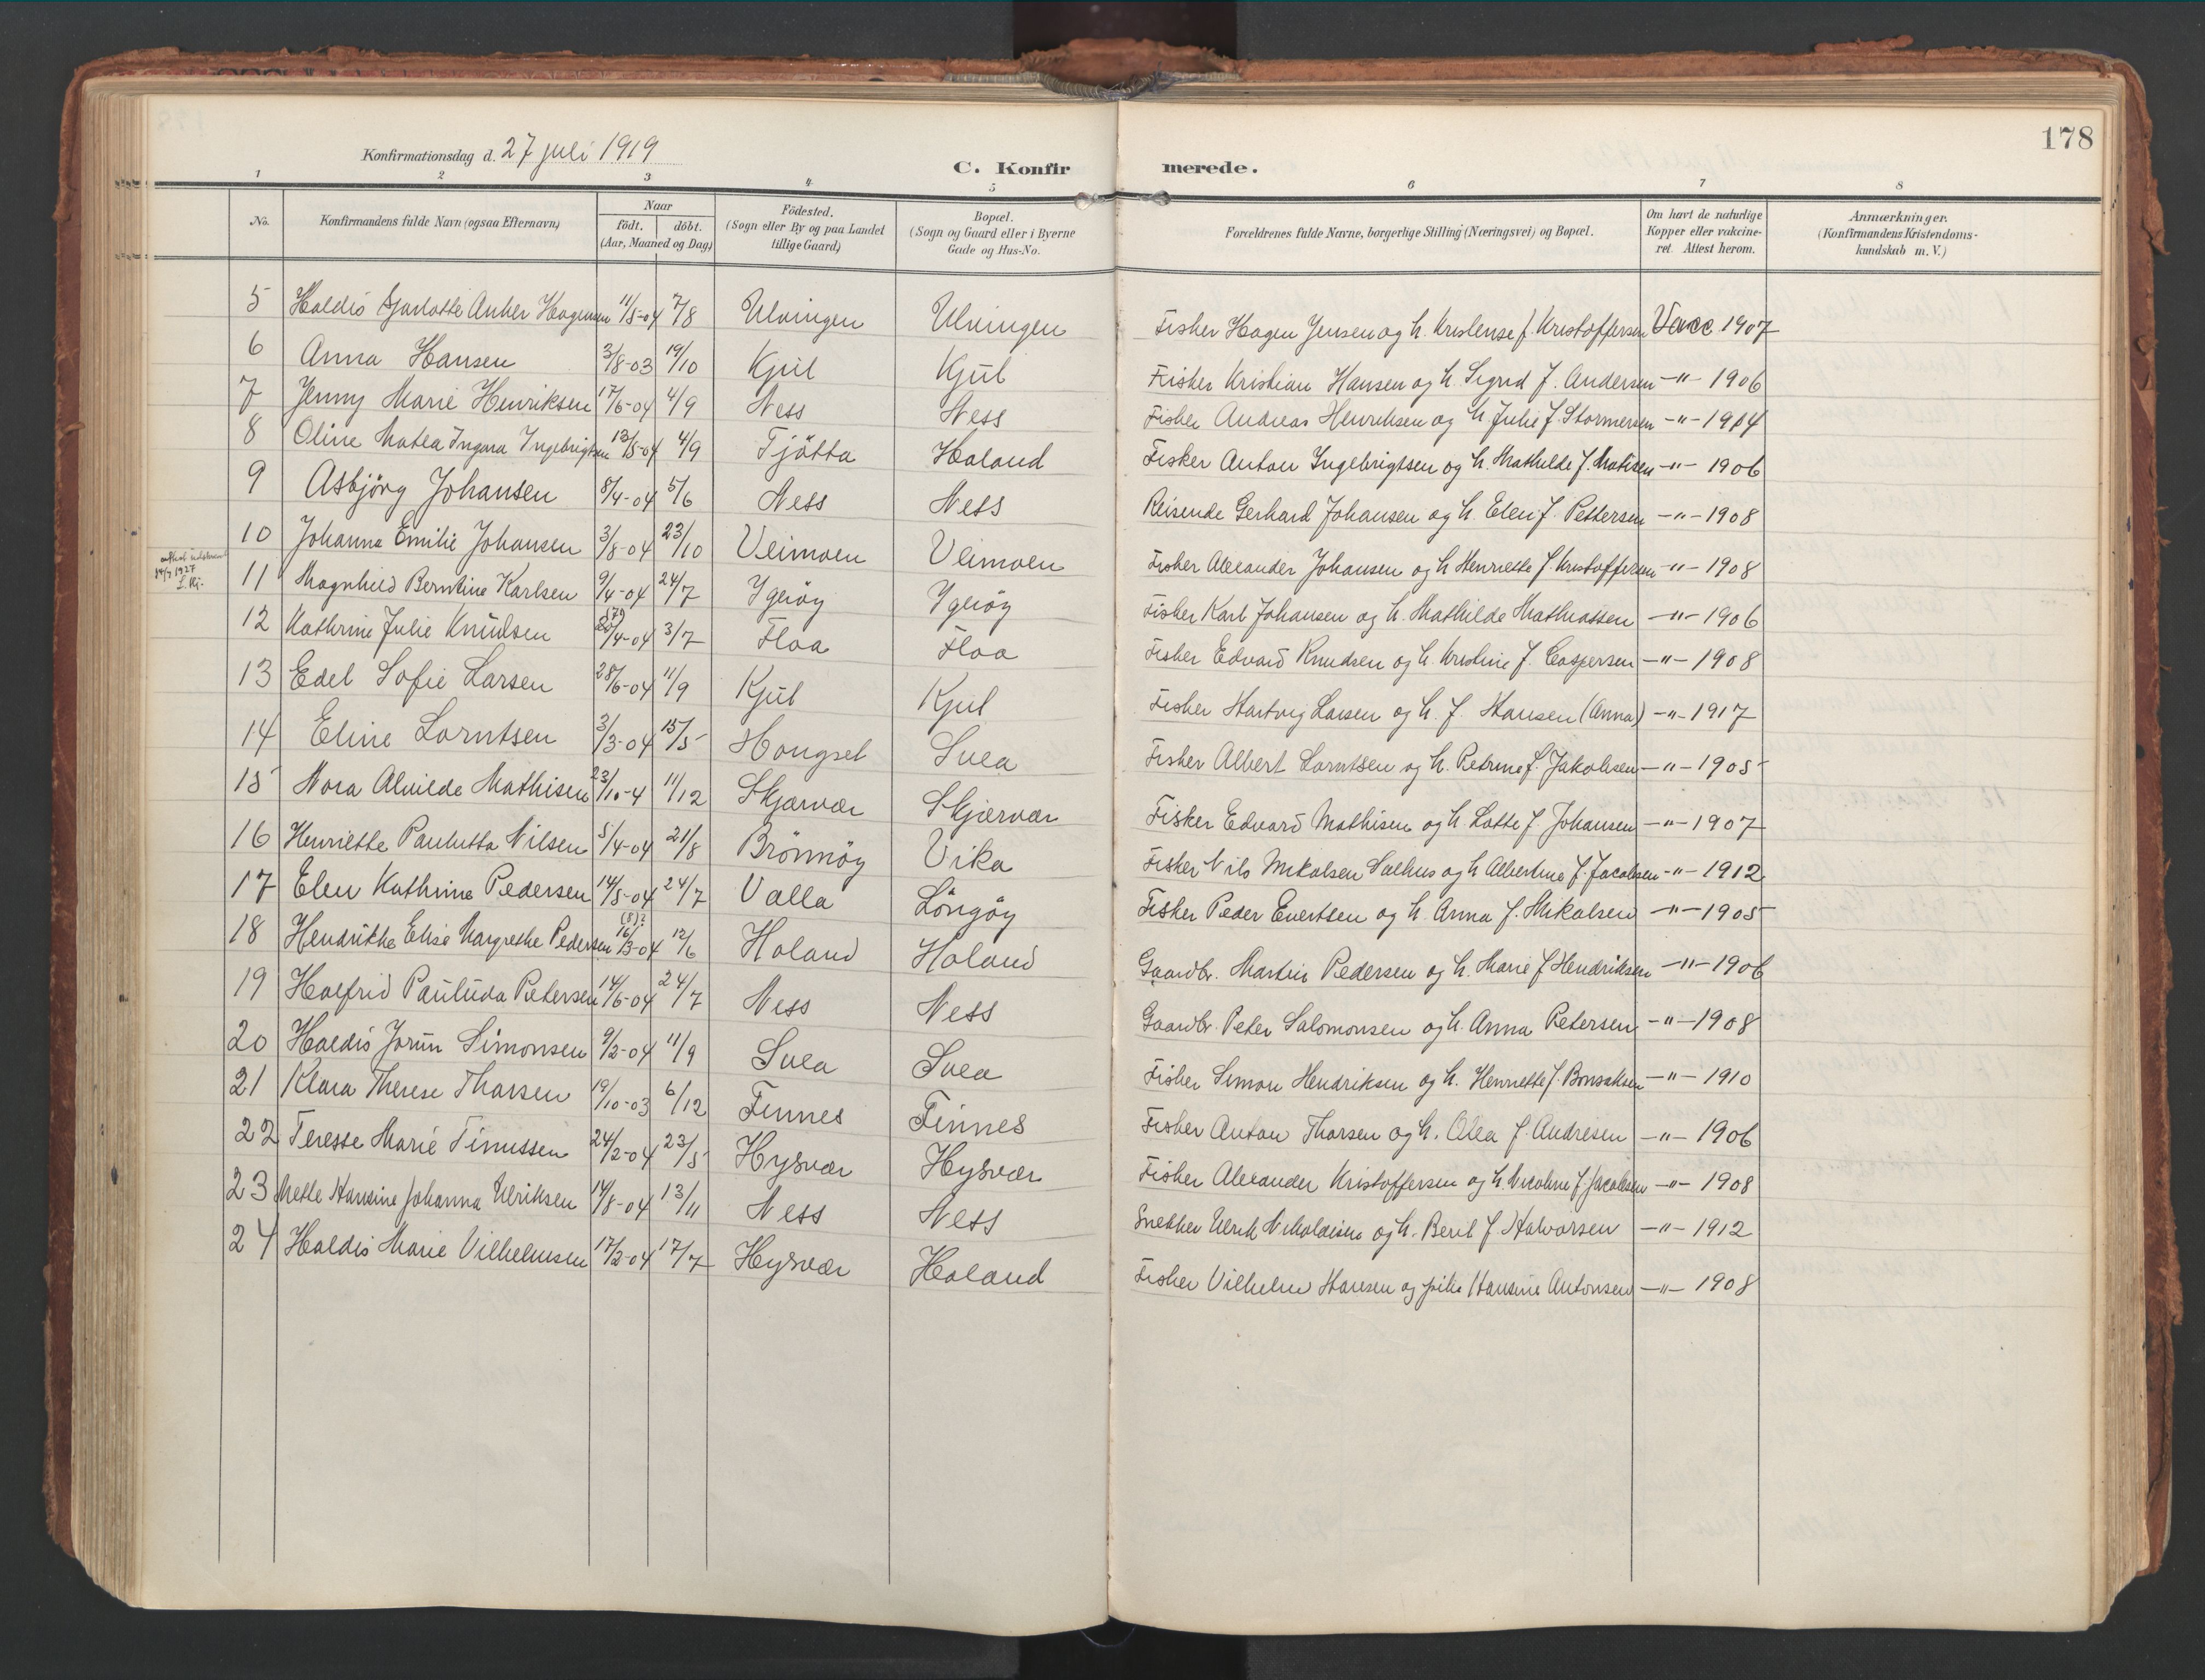 178
Konfirmationsdag d. 27 juli 1919
C. Konfirmerede.
1 2 3 4 5 6 7 8
No.
Konfirmandens fulde Navn (ogsaa Efternavn)
Naar
födt. döbt.
(Aar, Maaned og Dag)
Födested.
(Sogn eller By og paa Landet
tillige Gaard)
Bopæl.
(Sogn og Gaard eller i Byerne
Gade og Hus-No.
Forældrenes fulde Navne, borgerlige Stilling (Næringsvei) og Bopæl.
Om havt de naturlige
Kopper eller vakcine-
ret. Attest herom.
Anmærkninger.
(Konfirmandens Kristendoms-
kundskab m. V.)
5 Haldis Anker Hagensen 11/5-04 7/8 Ulvingen Ulvingen Fisker Hagen Jensen og h. Kristense f. Kristoffersen Vacc 1907
6 Anna Hansen 3/8-03 19/10 Kjul Kjul Fisker Kristian Hansen og h. Sigrid f. Andersen -"- 1906
7 Jenny Marie Henriksen 17/6-04 4/9 Ness Ness Fisker Andreas Henriksen og h. Julie f. Stormersen -"- 1914
8 Oline Matea Ingara Ingebrigtsen 13/5-04 4/9 Tjötta Haland Fisker Anton Ingebrigtsen og h. Mathilde f. Matisen -"- 1906
9 Asbjörg Johansen 8/4-04 5/6 Ness Ness Reisende Gerhard Johansen og h. Elen f. Pettersen -"- 1908
10 Johanna Emilie Johansen 3/8-04 23/10 Veimoen Veimoen Fisker Alexander Johansen og h. Henriette f. Kristoffersen -"- 1908
14/7 1927
11 Magnhild Berntine Karlsen 9/4-04 24/7 Ygeröy Ygeröy Fisker Karl Johansen og h. Mathilde Mathiassen -"- 1906
12 Kathrine Julie Knudsen /4-04 3/7 Floa Floa Fisker Edvard Knudsen og h. Kristine f. Caspersen -"- 1908
13 Edel Sofie Larsen 28/6-04 11/9 Kjul Kjul Fisker Hartvig Larsen og h. f. Hansen (Anna) -"- 1917
14 Eline Lorntsen 3/3-04 15/5 Hongset Svea Fisker Albert Lorntsen og h. Petrine f. Jakobsen -"- 1905
15 Nora Alvilde Mathisen 23/10-4 11/12 Skjærvær Skjærvær Fisker Edvard Mathisen og h. Lotte f. Johansen -"- 1907
16 Henriette Paulutta Nilsen 5/4-04 21/8 Brönnöy Vika Fisker Nils Mikalsen Salhus og h. Albertine f. Jacobsen -"- 1912
17 Elen Kathrine Pedersen 14/5-04 24/7 Valla Löngöy Fisker Peder Evertsen og h. Anna f. Mikalsen -"- 1905
18 Hendrikke Elise Margrethe Pedersen (8)? 16/3-04 12/6 Haland Haland Gaardbr. Martin Pedersen og h. Marie f. Hendriksen -"- 1906
19 Halfrid Pauluda Petersen 14/6-04 24/7 Ness Ness Gaardbr. Peter Salomonsen og h. Anna Petersen -"- 1908
20 Haldis Jorun Simonsen 9/2-04 11/9 Svea Svea Fisker Simon Hendriksen og h. Henriette f. Bonsaksen -"- 1910
21 Klara Therese Tharsen 19/10-03 6/12 Finnes Finnes Fisker Anton Thorsen og h. Olea f. Andresen -"- 1906
22 Teresse Marie Tinussen 24/2-04 23/5 Hysvær Hysvær Fisker Alexander Kristoffersen og h. Nicoline f. Jacobsen -"- 1908
23 Mette Hansine Johanna Ulriksen 14/8-04 13/11 Ness Ness Snekker Ulrik Nikolaisen og h. Beret f. Halvorsen -"- 1912
24 Haldis Marie Vilhelmsen 17/2-04 17/7 Hysvær Haland Fisker Vilhelm Hansen og pike Hansine Antonsen -"- 1908